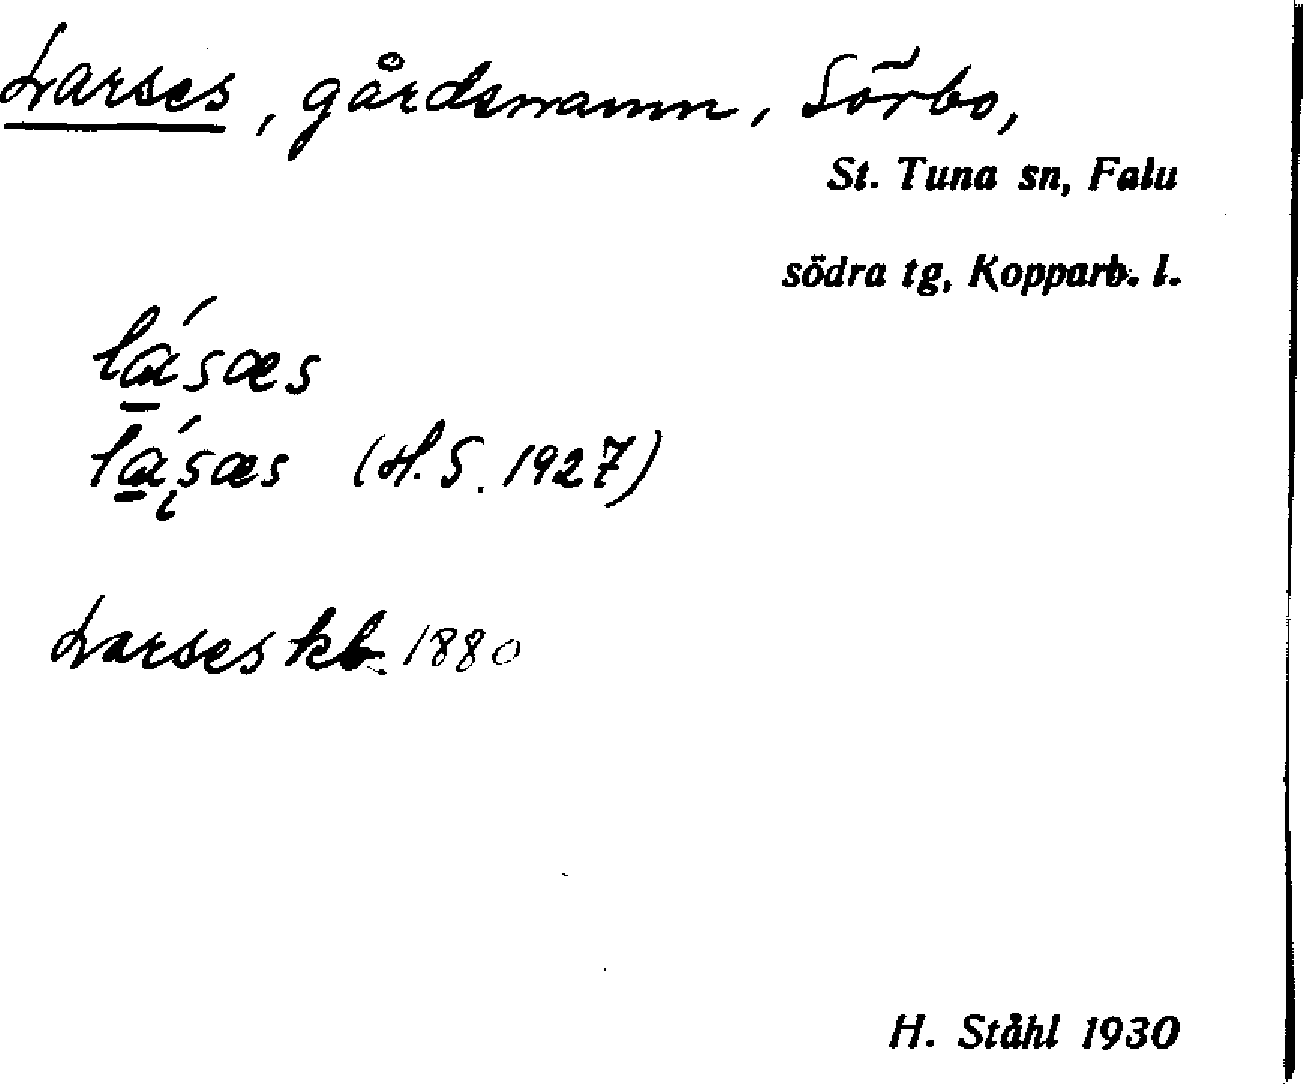 Larses, gårdsnamn, Sörbo,
St. Tuna sn, Falu
södra tg, Kopparb. l.
lά̱sæs
lά̱s̨æs (H. S. 1927)
Larses kb. 1880
H. Ståhl 1930